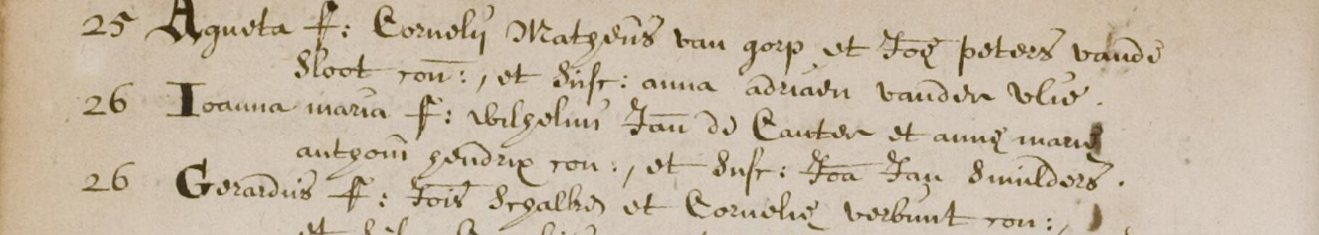 25 Agneta f: Cornelij Matheus̄ van gorp et Joē peters vande
Sloot con:, et Susc: anna adriaen vanden vlie.
26 Ioanna maria f: wilhelmi Jan de Canter et annę marię
anthonī hendrix con:, et Susc: Joā Jan Smulders.
26 Gerardus f: Jois̄ Schalken et Cornelię verbunt con:,
et